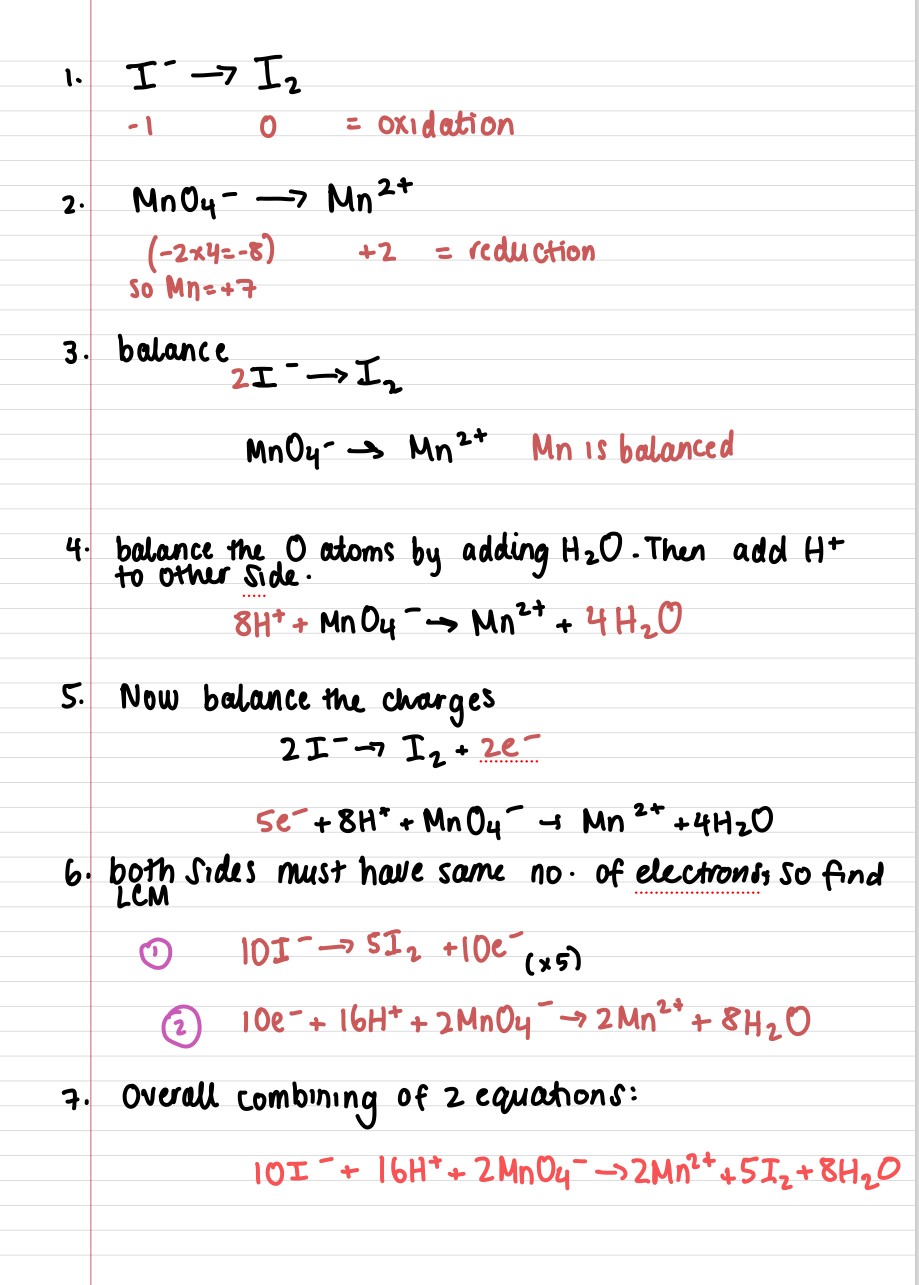 1. I⁻ → I₂
-1 0 = oxidation
2. MnO₄⁻ → Mn²⁺
(-2×4=-8) +2 = reduction
so Mn=+7
3. balance
2I⁻ → I₂
MnO₄⁻ → Mn²⁺ Mn is balanced
4. balance the O atoms by adding H₂O. Then add H⁺
to other side.
8H⁺ + MnO₄⁻ → Mn²⁺ + 4H₂O
5. Now balance the charges
2I⁻ → I₂ + 2e⁻
5e⁻ + 8H⁺ + MnO₄⁻ → Mn²⁺ + 4H₂O
6. both sides must have same no. of electrons, so find
LCM
① 10I⁻ → 5I₂ + 10e⁻ (×5)
② 10e⁻ + 16H⁺ + 2MnO₄⁻ → 2Mn²⁺ + 8H₂O
7. Overall combining of 2 equations:
10I⁻ + 16H⁺ + 2MnO₄⁻ → 2Mn²⁺ + 5I₂ + 8H₂O